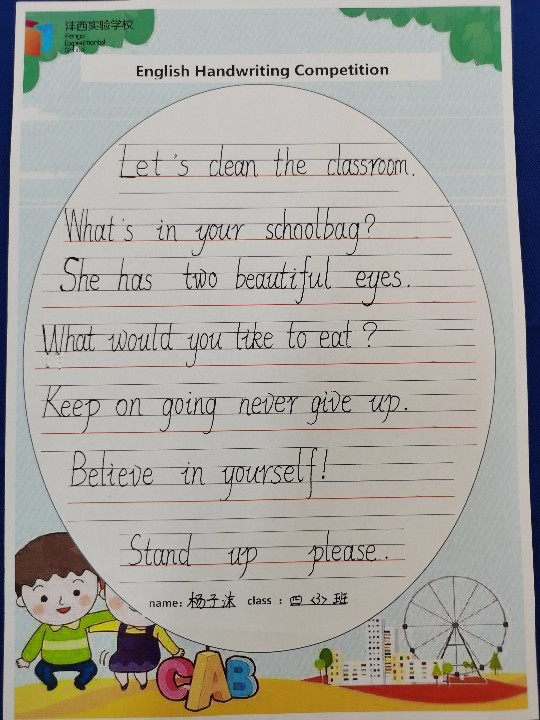 沣西实验学校
Fengxi
Experimental
School
English Handwriting Competition
Let's clean the classroom.
What's in your schoolbag?
She has two beautiful eyes.
What would you like to eat?
Keep on going never give up.
Believe in yourself!
Stand up please.
name: 杨子沫 class: 四〈3〉班
CAB